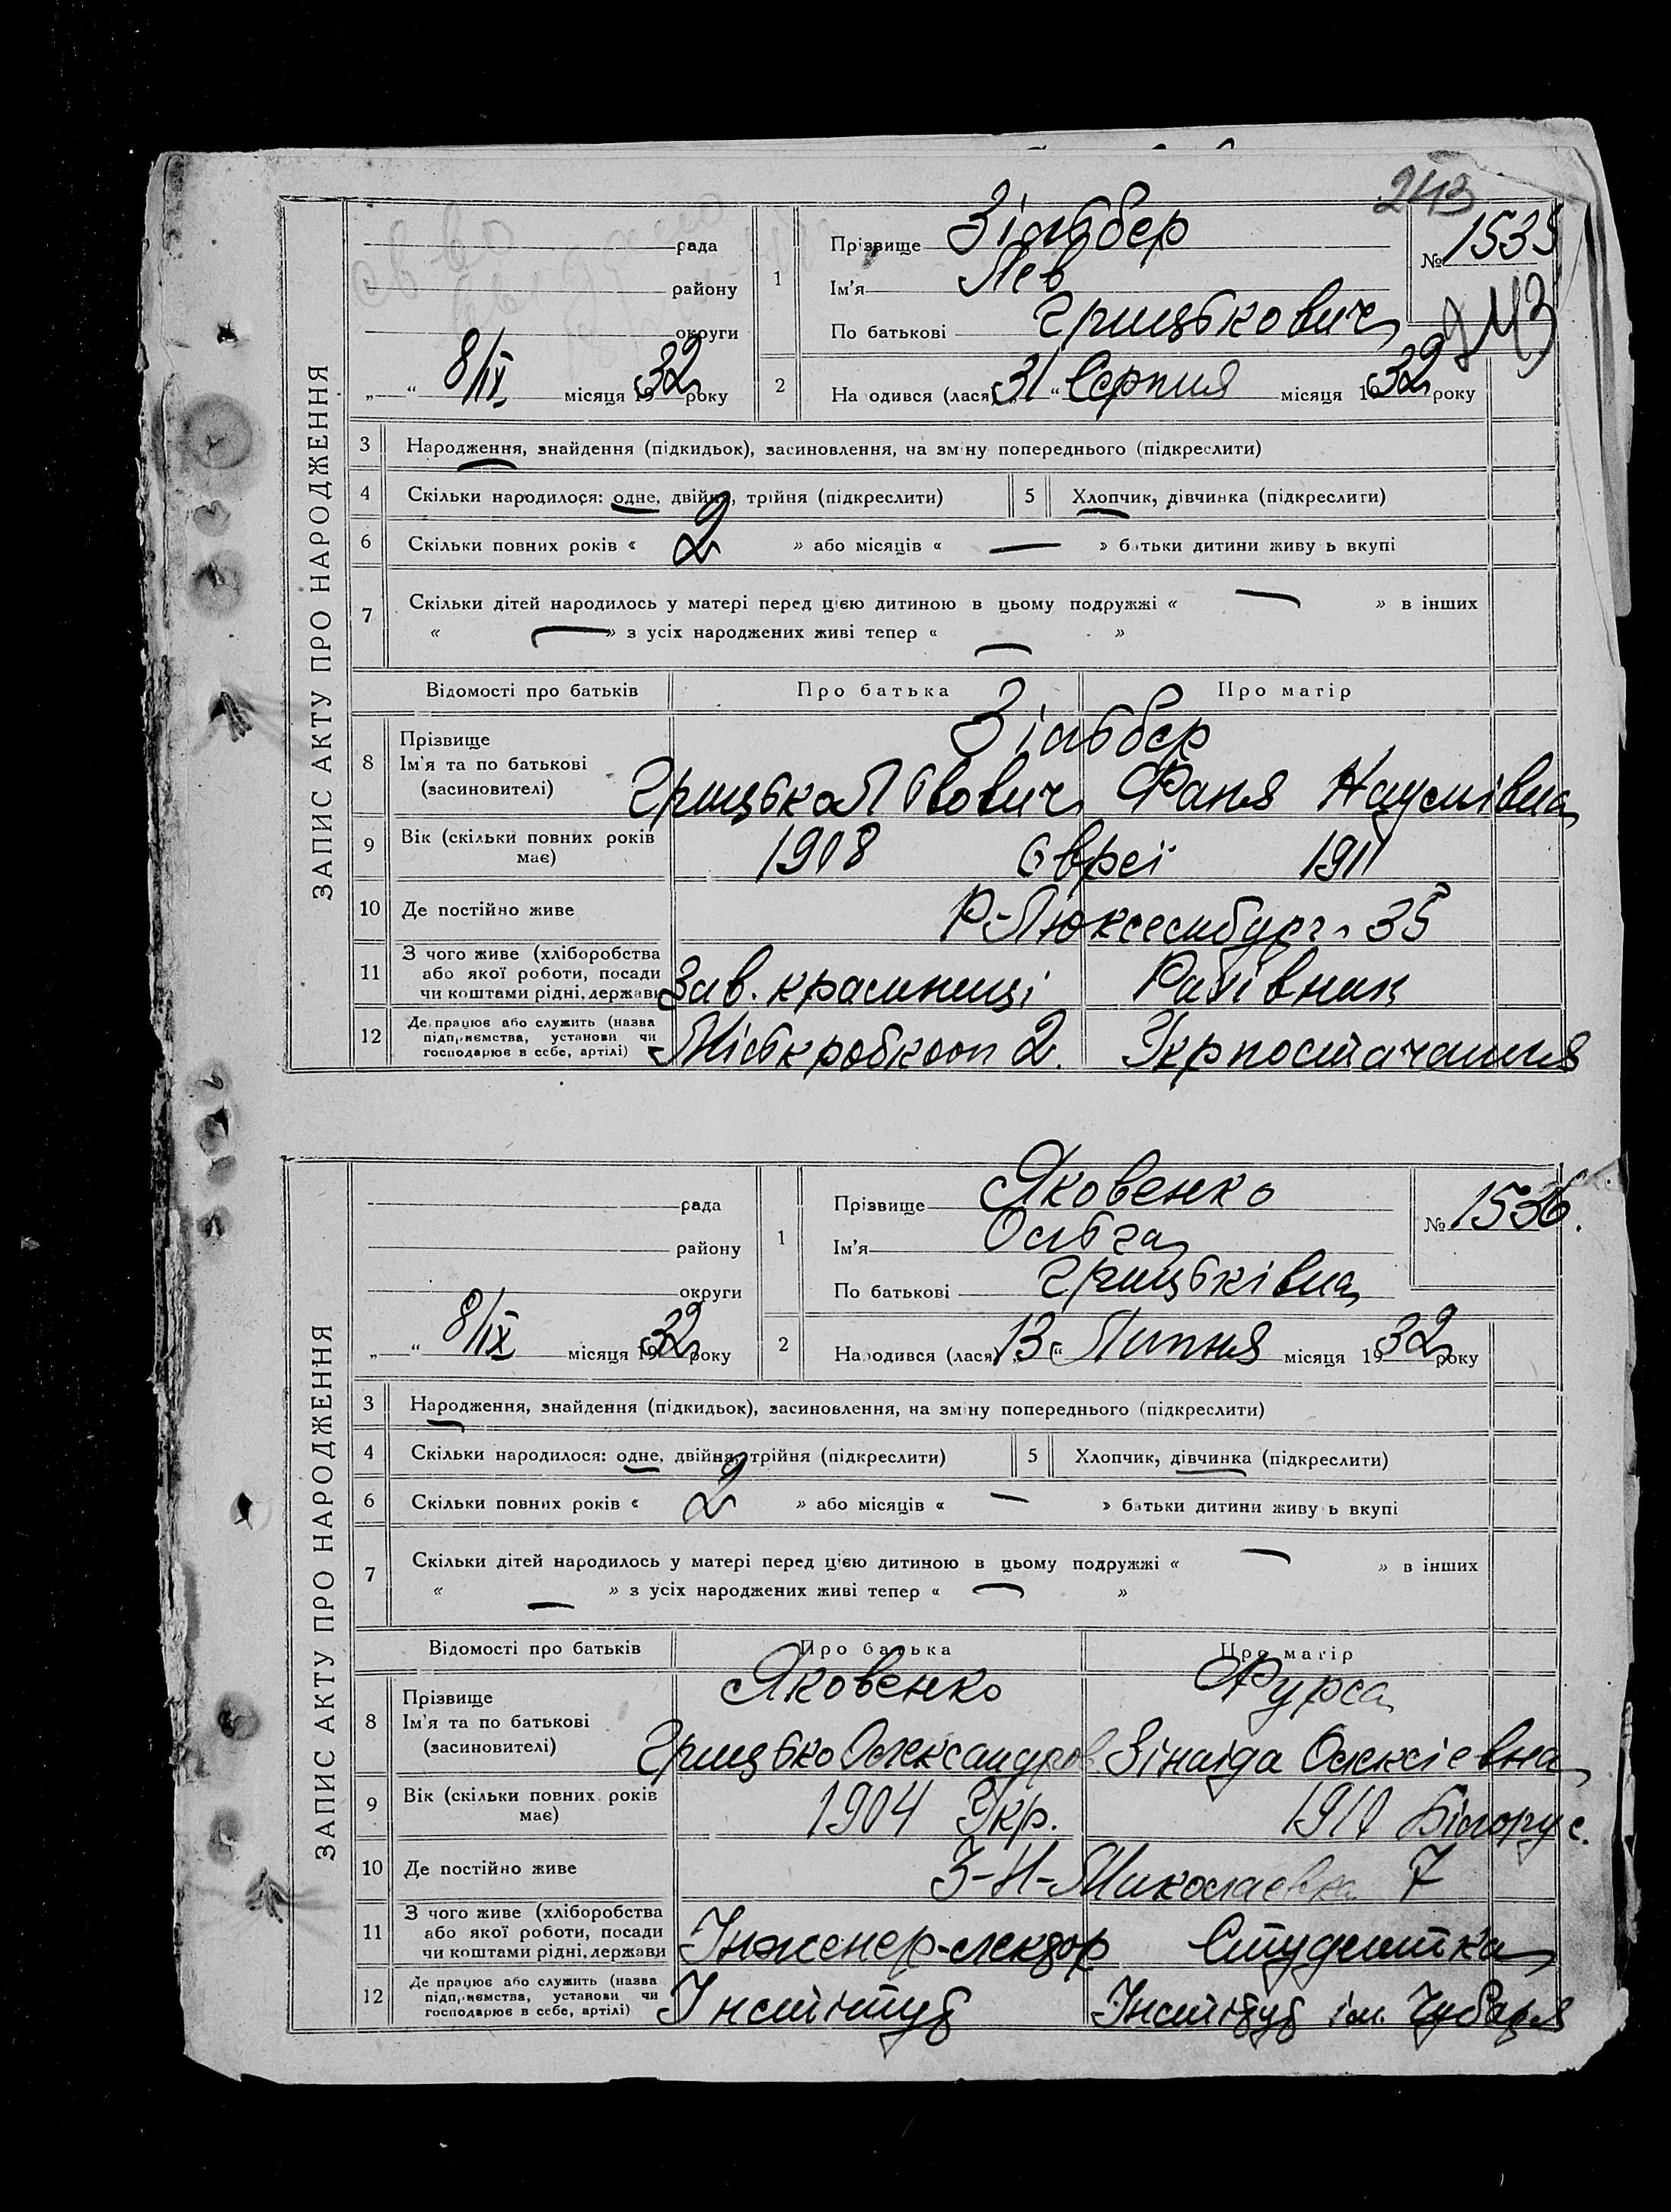 243
ЗАПИС АКТУ ПРО НАРОДЖЕННЯ
рада
району
округи
„ “ 8/IX місяця 1932 року
1 Прізвище Зільбер
Ім'я Лев
По батькові Грицькович
№ 1535
243
2 На одився (лася) „31“ Серпня місяця 1932 року
3 Народження, знайдення (підкидьок), засиновлення, на зм ну попереднього (підкреслити)
4 Скільки народилося: одне, двійня, трійня (підкреслити) 5 Хлопчик, дівчинка (підкреслити)
6 Скільки повних років « 2 » або місяців « — » батьки дитини живу ь вкупі
7 Скільки дітей народилось у матері перед цією дитиною в цьому подружжі « — » в інших
« — » з усіх народжених живі тепер « — »
Відомості про батьків Про батька Про матір
8 Прізвище Зільбер
Ім'я та по батькові
(засиновителі) Грицько Львович Фаня Наумівна
9 Вік (скільки повних років
має) 1908 Євреї 1911
10 Де постійно живе Р-Люксембург 35
11 З чого живе (хліборобства
або якої роботи, посади
чи коштами рідні, держави Зав. крамниці Рахівник
12 Де працює або служить (назва
підприємства, установи чи
господарює в себе, артілі) Міськробкооп 2. Укрпостачання
ЗАПИС АКТУ ПРО НАРОДЖЕННЯ
рада
району
округи
„ “ 8/IX місяця 1932 року
1 Прізвище Яковенко
Ім'я Ольга
По батькові Грицьківна
№ 1536.
2 Народився (лася) „13“ Липня місяця 1932 року
3 Народження, знайдення (підкидьок), засиновлення, на зміну попереднього (підкреслити)
4 Скільки народилося: одне, двійня, трійня (підкреслити) 5 Хлопчик, дівчинка (підкреслити)
6 Скільки повних років « 2 » або місяців « — » батьки дитини живу ь вкупі
7 Скільки дітей народилось у матері перед цією дитиною в цьому подружжі « — » в інших
« — » з усіх народжених живі тепер « — »
Відомості про батьків Про батька Про матір
8 Прізвище Яковенко Фурса
Ім'я та по батькові
(засиновителі) Грицько Олександров Зінаїда Олексієвна
9 Вік (скільки повних років
має) 1904 Укр. 1910 Білорус.
10 Де постійно живе З-Н-Миколаєвка 7
11 З чого живе (хліборобства
або якої роботи, посади
чи коштами рідні, держави Інженер-лектор Студентка
12 Де працює або служить (назва
підприємства, установи чи
господарює в себе, артілі) Інститут Інститут ім. Чубаря